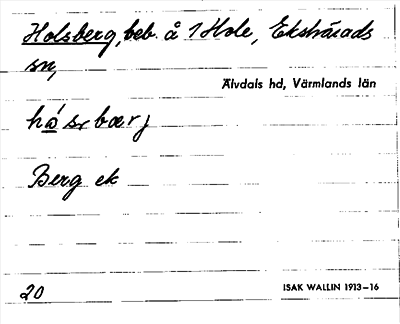 Holsberg, beb. å 1 Hole, Ekshärads
sn,
Älvdals hd, Värmlands län
há sɾ bær j
Berg ek
20
ISAK WALLIN 1913–16